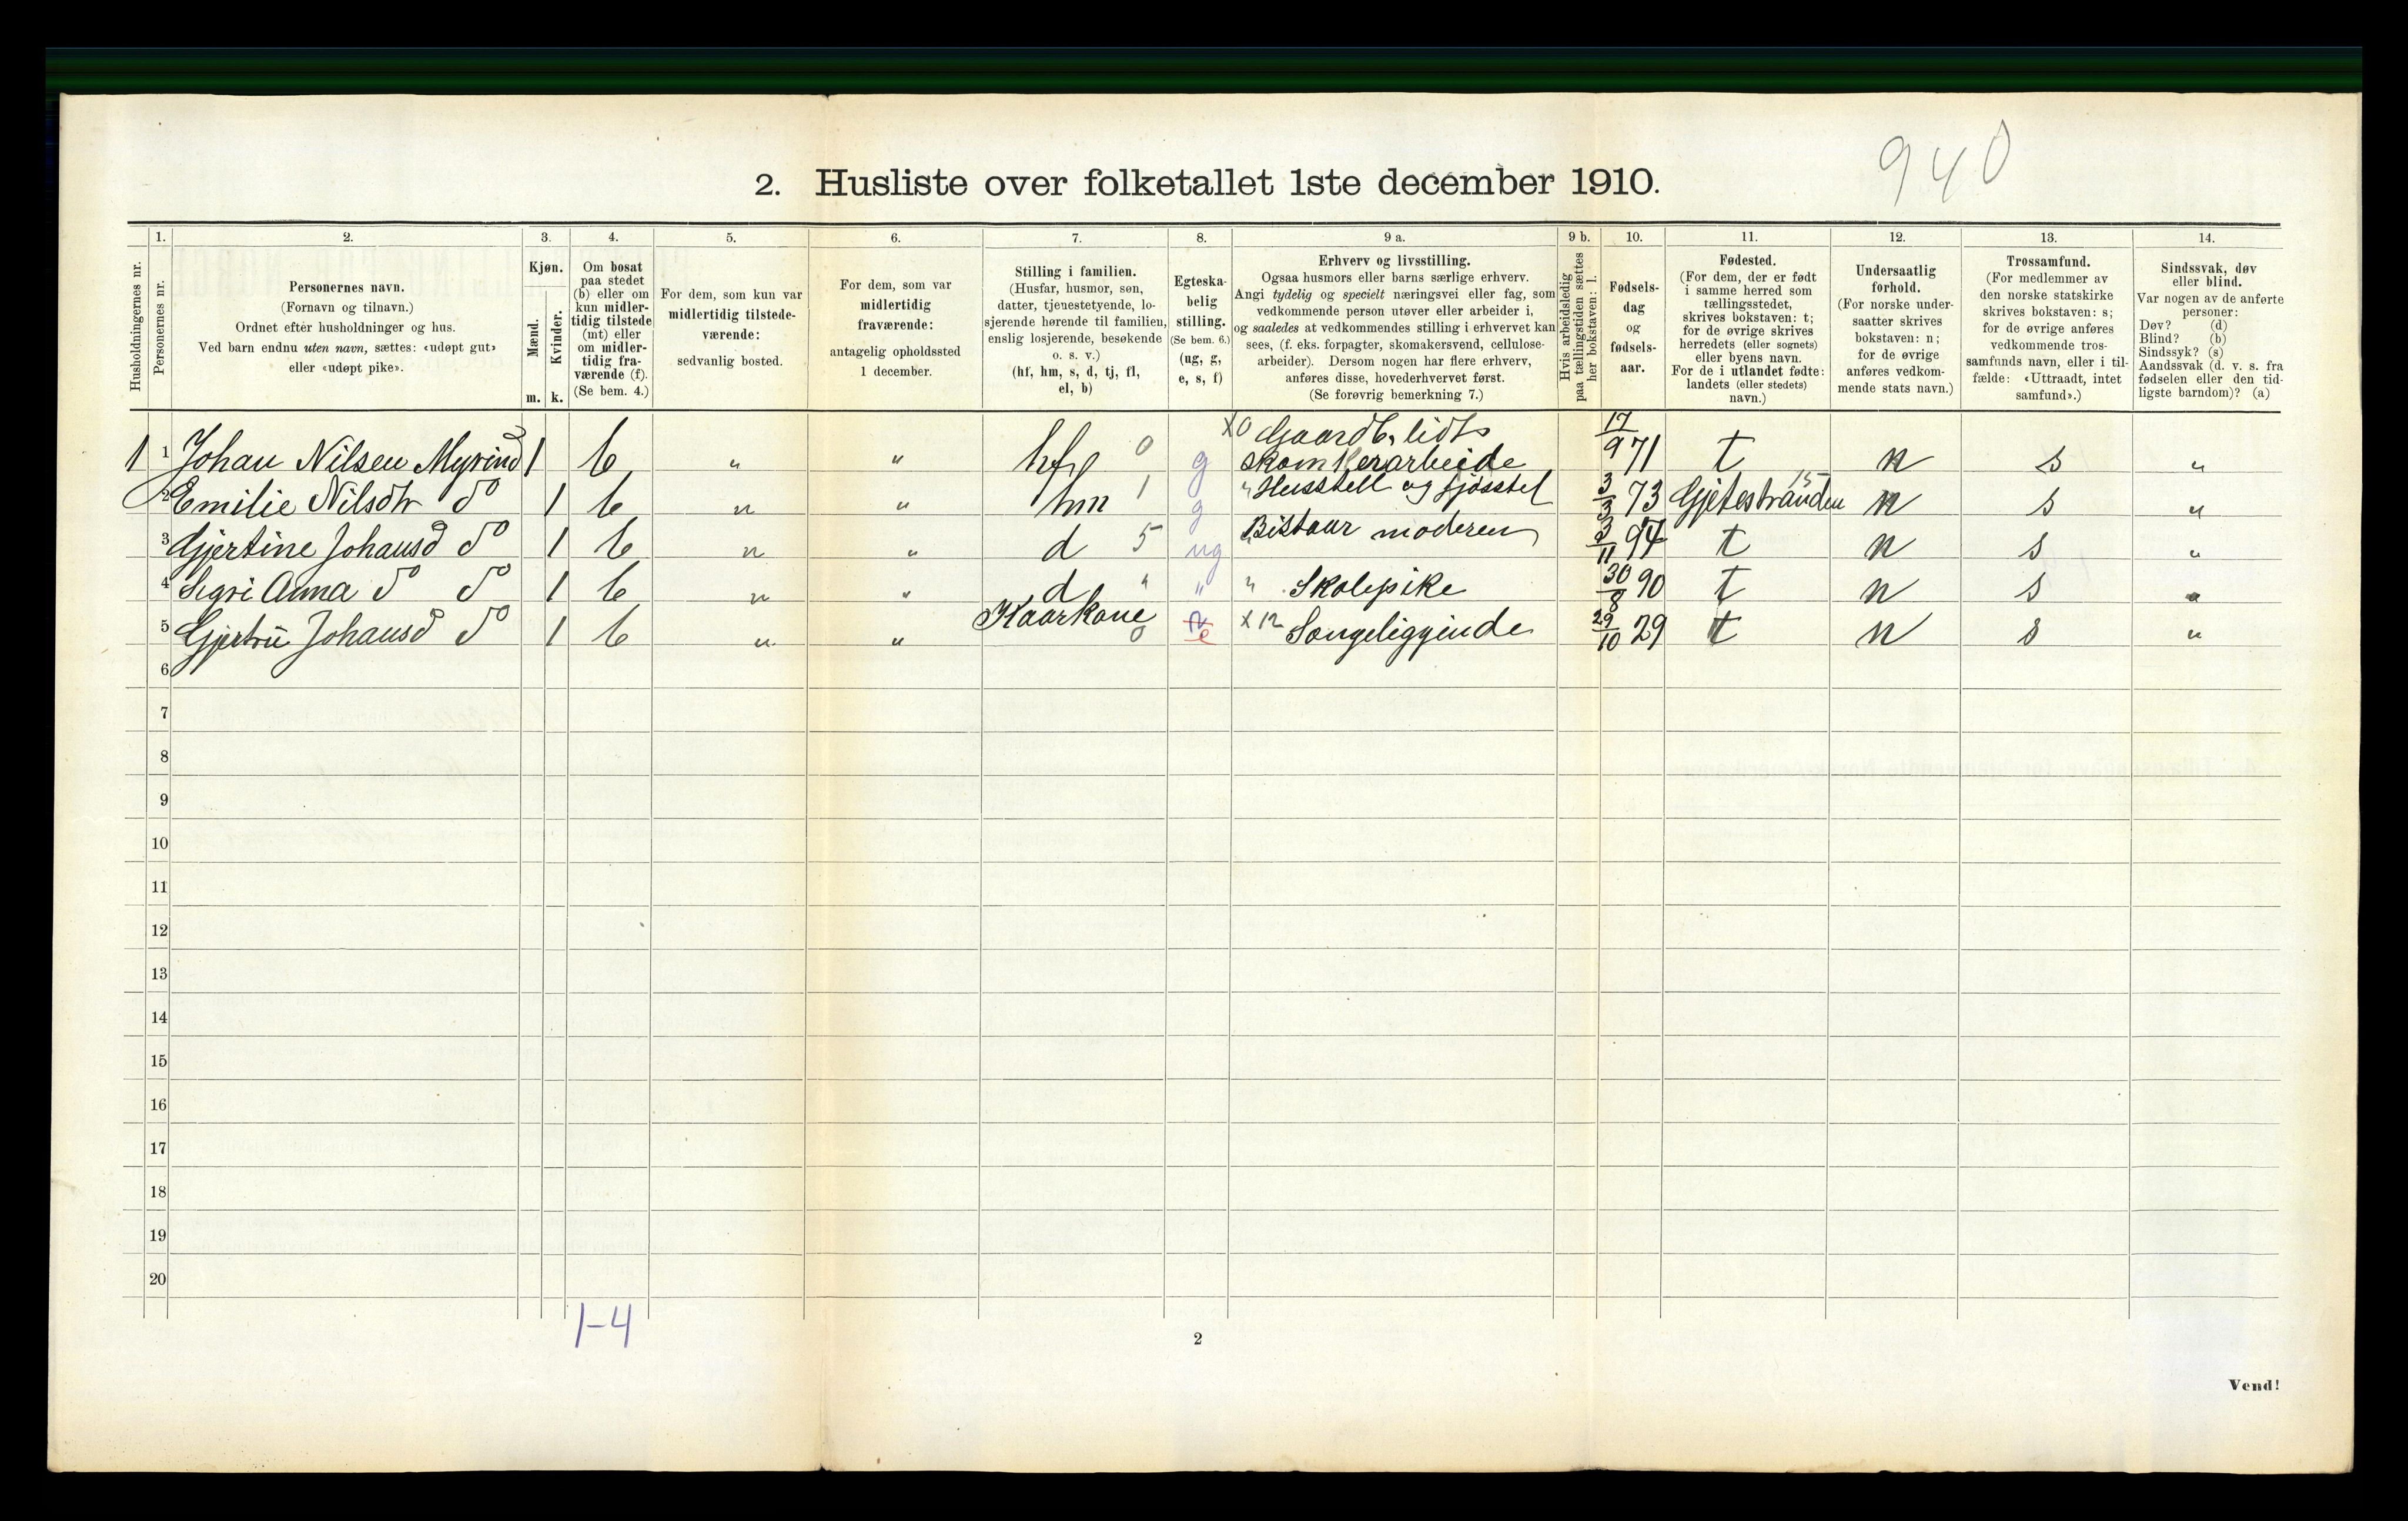 940
2. Husliste over folketallet 1ste december 1910.
Husholdningernes nr.
1.
Personernes nr.
2.
Personernes navn.
(Fornavn og tilnavn.)
Ordnet efter husholdninger og hus.
Ved barn endnu uten navn, sættes: «udøpt gut»
eller «udøpt pike».
3.
Kjøn.
Mænd.
Kvinder.
m. k.
4.
Om bosat
paa stedet
(b) eller om
kun midler-
tidig tilstede
(mt) eller
om midler-
tidig fra-
værende (f).
(Se bem. 4.)
5.
For dem, som kun var
midlertidig tilstede-
værende:
sedvanlig bosted.
6.
For dem, som var
midlertidig
fraværende:
antagelig opholdssted
1 december.
7.
Stilling i familien.
(Husfar, husmor, søn,
datter, tjenestetyende, lo-
sjerende hørende til familien,
enslig losjerende, besøkende
o. s. v.)
(hf, hm, s, d, tj, fl,
el, b)
8.
Egteska-
belig
stilling.
(Se bem. 6.)
(ug, g,
e, s, f)
9 a.
Erhverv og livsstilling.
Ogsaa husmors eller barns særlige erhverv.
Angi tydelig og specielt næringsvei eller fag, som
vedkommende person utøver eller arbeider i,
og saaledes at vedkommendes stilling i erhvervet kan
sees, (f. eks. forpagter, skomakersvend, cellulose-
arbeider). Dersom nogen har flere erhverv,
anføres disse, hovederhvervet først.
(Se forøvrig bemerkning 7.)
9 b.
Hvis arbeidsledig
paa tællingstiden sættes
her bokstaven: l.
10.
Fødsels-
dag
og
fødsels-
aar.
11.
Fødested.
(For dem, der er født
i samme herred som
tællingsstedet,
skrives bokstaven: t;
for de øvrige skrives
herredets (eller sognets)
eller byens navn.
For de i utlandet fødte:
landets (eller stedets)
navn.)
12.
Undersaatlig
forhold.
(For norske under-
saatter skrives
bokstaven: n;
for de øvrige
anføres vedkom-
mende stats navn.)
13.
Trossamfund.
(For medlemmer av
den norske statskirke
skrives bokstaven: s;
for de øvrige anføres
vedkommende tros-
samfunds navn, eller i til-
fælde: «Uttraadt, intet
samfund».)
14.
Sindssvak, døv
eller blind.
Var nogen av de anførte
personer:
Døv? (d)
Blind? (b)
Sindssyk? (s)
Aandssvak (d. v. s. fra
fødselen eller den tid-
ligste barndom)? (a)
X0 Gaardb, lidt
1 1 Johan Nilsen Myrind 1 b " " 0 g 17/9 71 t n s "
2 Emilie Nilsdtr do 1 b " " hm 1 g " Husstell og fjøsstel 3/3 73 15 n s "
3 Gjertine Johansd do 1 b " " d 5 ug Bistaar moderen 94 t n s "
4 Sigri Anna do do 1 b " " d " " " Skolepike 30/8 90 t n s "
5 Gjertrü Johansd do 1 b " " Kaarkone 0 e X 12 Sengeliggjende 29/10 29 t n s "
6
7
8
9
10
11
12
13
14
15
16
17
18
19
20
1-4
2
Vend!